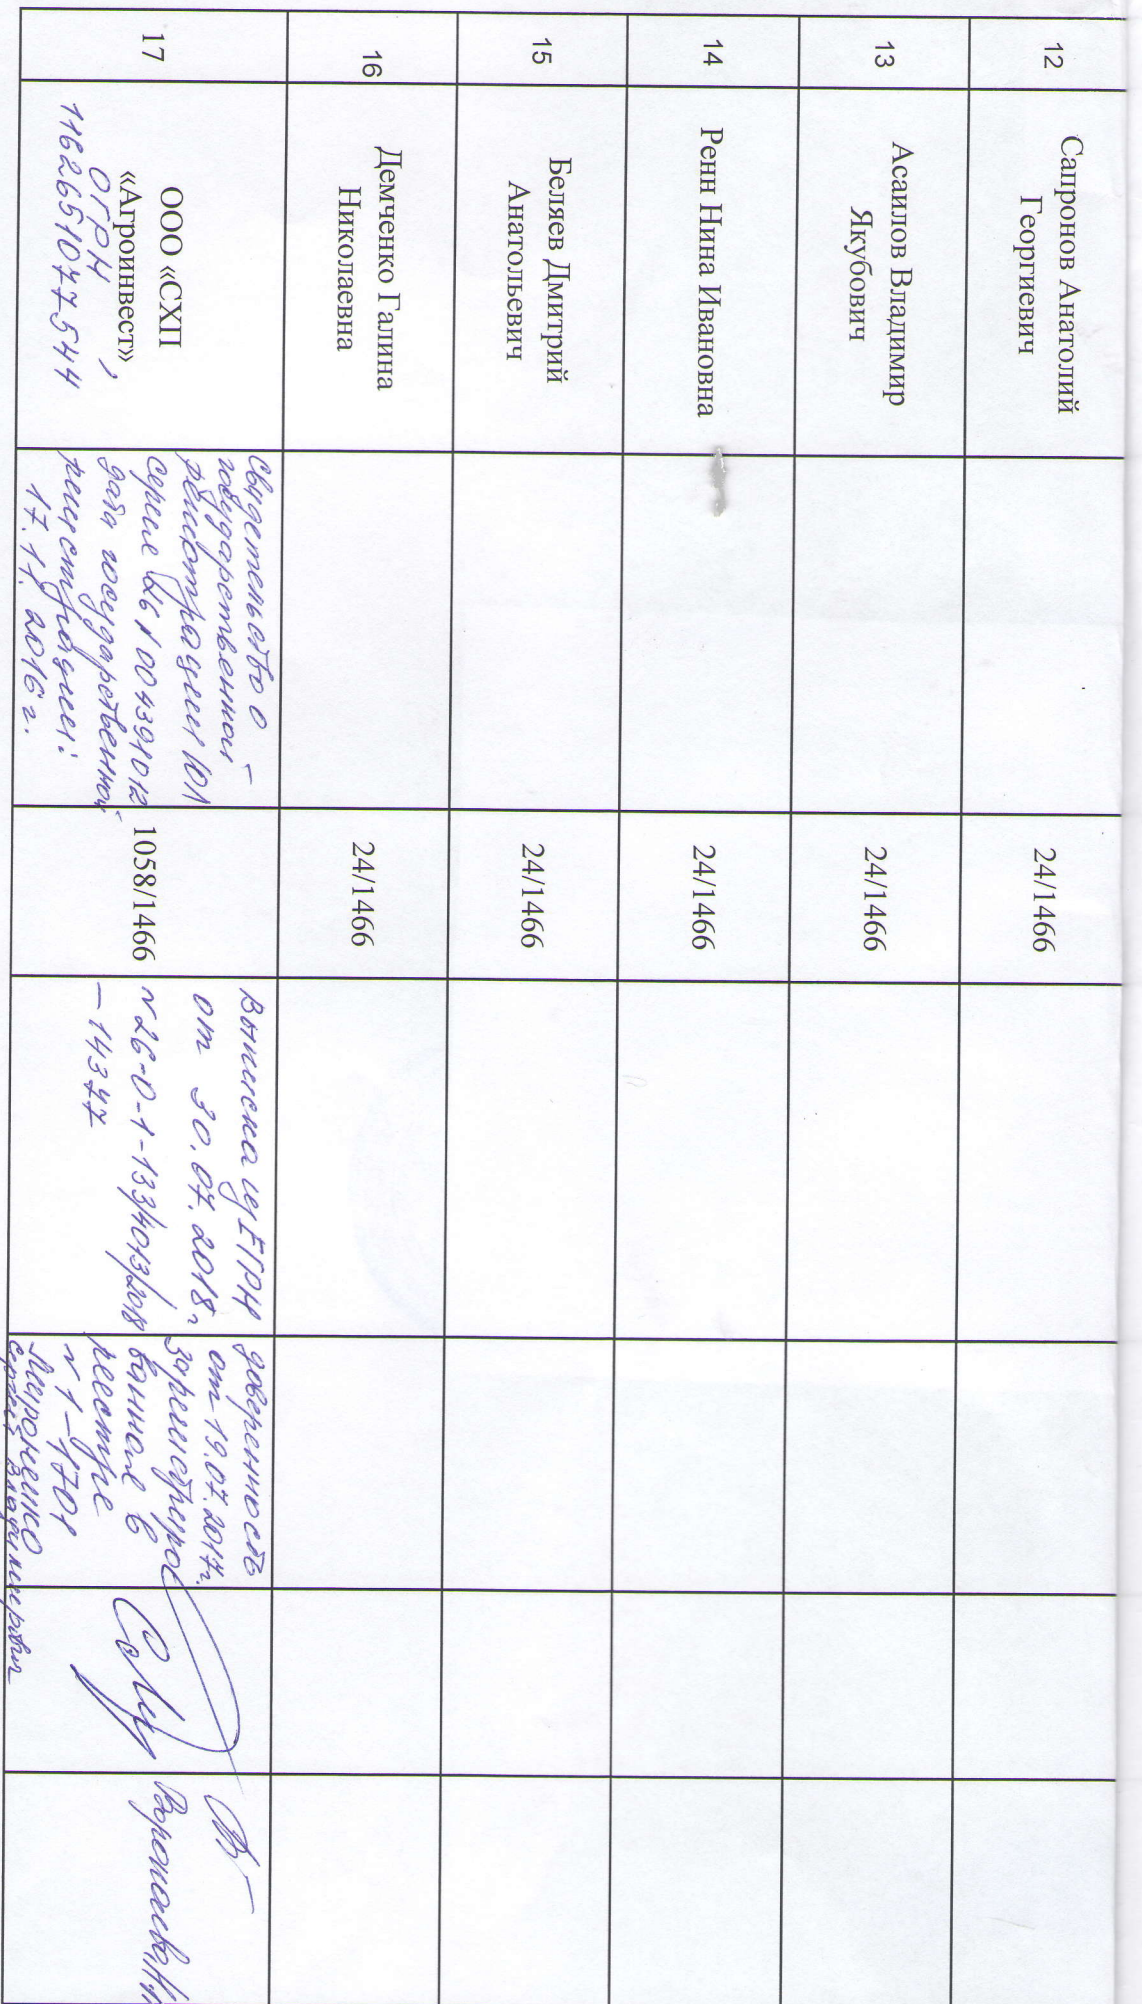 12
Сапронов Анатолий
Георгиевич
24/1466
13
Асаилов Владимир
Якубович
24/1466
14
Ренн Нина Ивановна
24/1466
15
Беляев Дмитрий
Анатольевич
24/1466
16
Демченко Галина
Николаевна
24/1466
17
ООО «СХП
«Агроинвест»,
ОГРН
1162651077544
Свидетельство о
государственной
регистрации ЮЛ
серия 26 № 004391012
дата государственной
регистрации:
17.11.2016 г.
1058/1466
Выписка из ЕГРН
от 30.07.2018г
№26-0-1-133/4013/2018
-14377
доверенность
от 19.07.2017г.
зарегистриро
ванная в
реестре
№ 1-1701
Мироненко
Сергей Владимирович